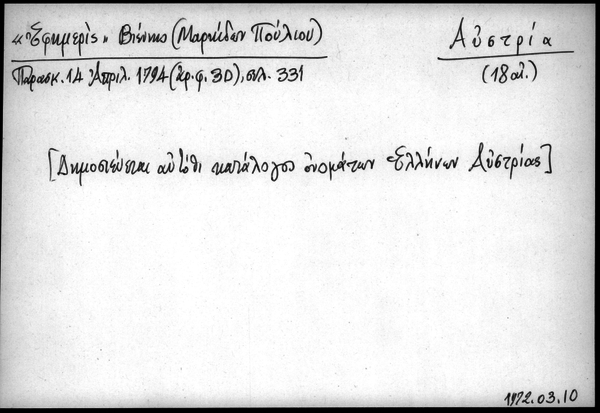 «Ἐφημερὶς» Βιέννης (Μαρκίδων Πούλιου)
Παρασκ. 14 Ἀπριλ. 1794 (ἀρ. φ. 30), σελ. 331
Αὐστρία
(18 αἰ.)
[Δημοσιεύεται αὐτόθι κατάλογος ὀνομάτων Ἑλλήνων Αὐστρίας]
1972.03.10